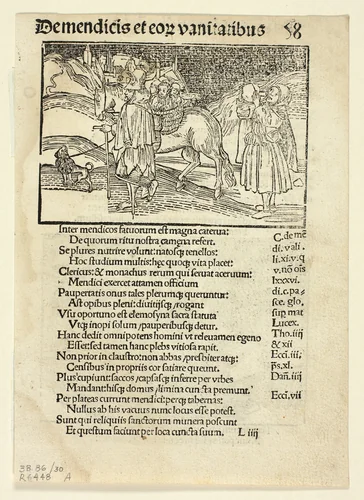 De mendicis et eoꝝ vanitatibus 58
Inter mendicos fatuorum est magna caterua:
De quorum ritu nostra camęna refert.
Se plures nutrire volunt: natosqꝫ tenellos:
Hoc studium multis: hęc quoqꝫ vita placet:
Clericus: & monachus rerum qui seruat aceruum:
Mendici exercet attamen officium
Paupertatis onus tales plerumqꝫ queruntur:
Ast opibus pleni: diuitijsqꝫ rogant
Vsu oportuno est elemosyna sacra statuta
Vtqꝫ inopi solum pauperibusqꝫ detur.
Hanc dedit omnipotens homini vt releuamen egeno
Esset: sed tamen hanc plebs vitiosa rapit.
Non prior in claustro: non abbas presbiter atqꝫ:
Censibus in propriis cor satiare queunt.
Plus cupiunt: saccos capsasqꝫ inferre per vrbes
Mandant: hisqꝫ domus limina cuncta premunt.
Per plateas currunt mendici: perqꝫ tabernas:
Nullus ab his vacuus nunc locus esse potest.
Sunt qui reliquiis sanctorum munera poscunt
Et questum faciunt per loca cuncta suum. L iiij
C. de mē
di. vali.
li. xi. v. q
v. nō ois
lxxxvi.
di. c. pa-
sce. glo.
sup mat
Lucex.
Tho. iiij
& xii
Ecci. iii.
ps. xl.
Dañ. iiij
Ecci. vii
38.86/30
R6448 A